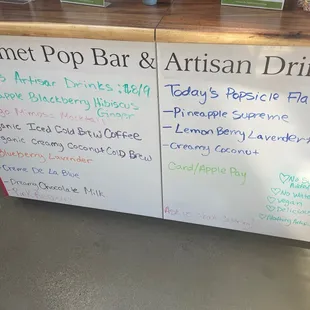 met Pop Bar & Artisan Drin
s Artisan Drinks: $8/9
apple Blackberry Hibiscus
Ginger
ganic Iced Cold Brew Coffee
ganic Creamy Coconut Cold Brew
Blueberry Lavender
-Creme De La Blue
-Dreamy Chocolate Milk
Today's Popsicle Fla
-Pineapple Supreme
-Lemon Berry Lavender
-Creamy Coconut
Card/Apple Pay
♡No
♡No
♡Vegan
♡Delicious